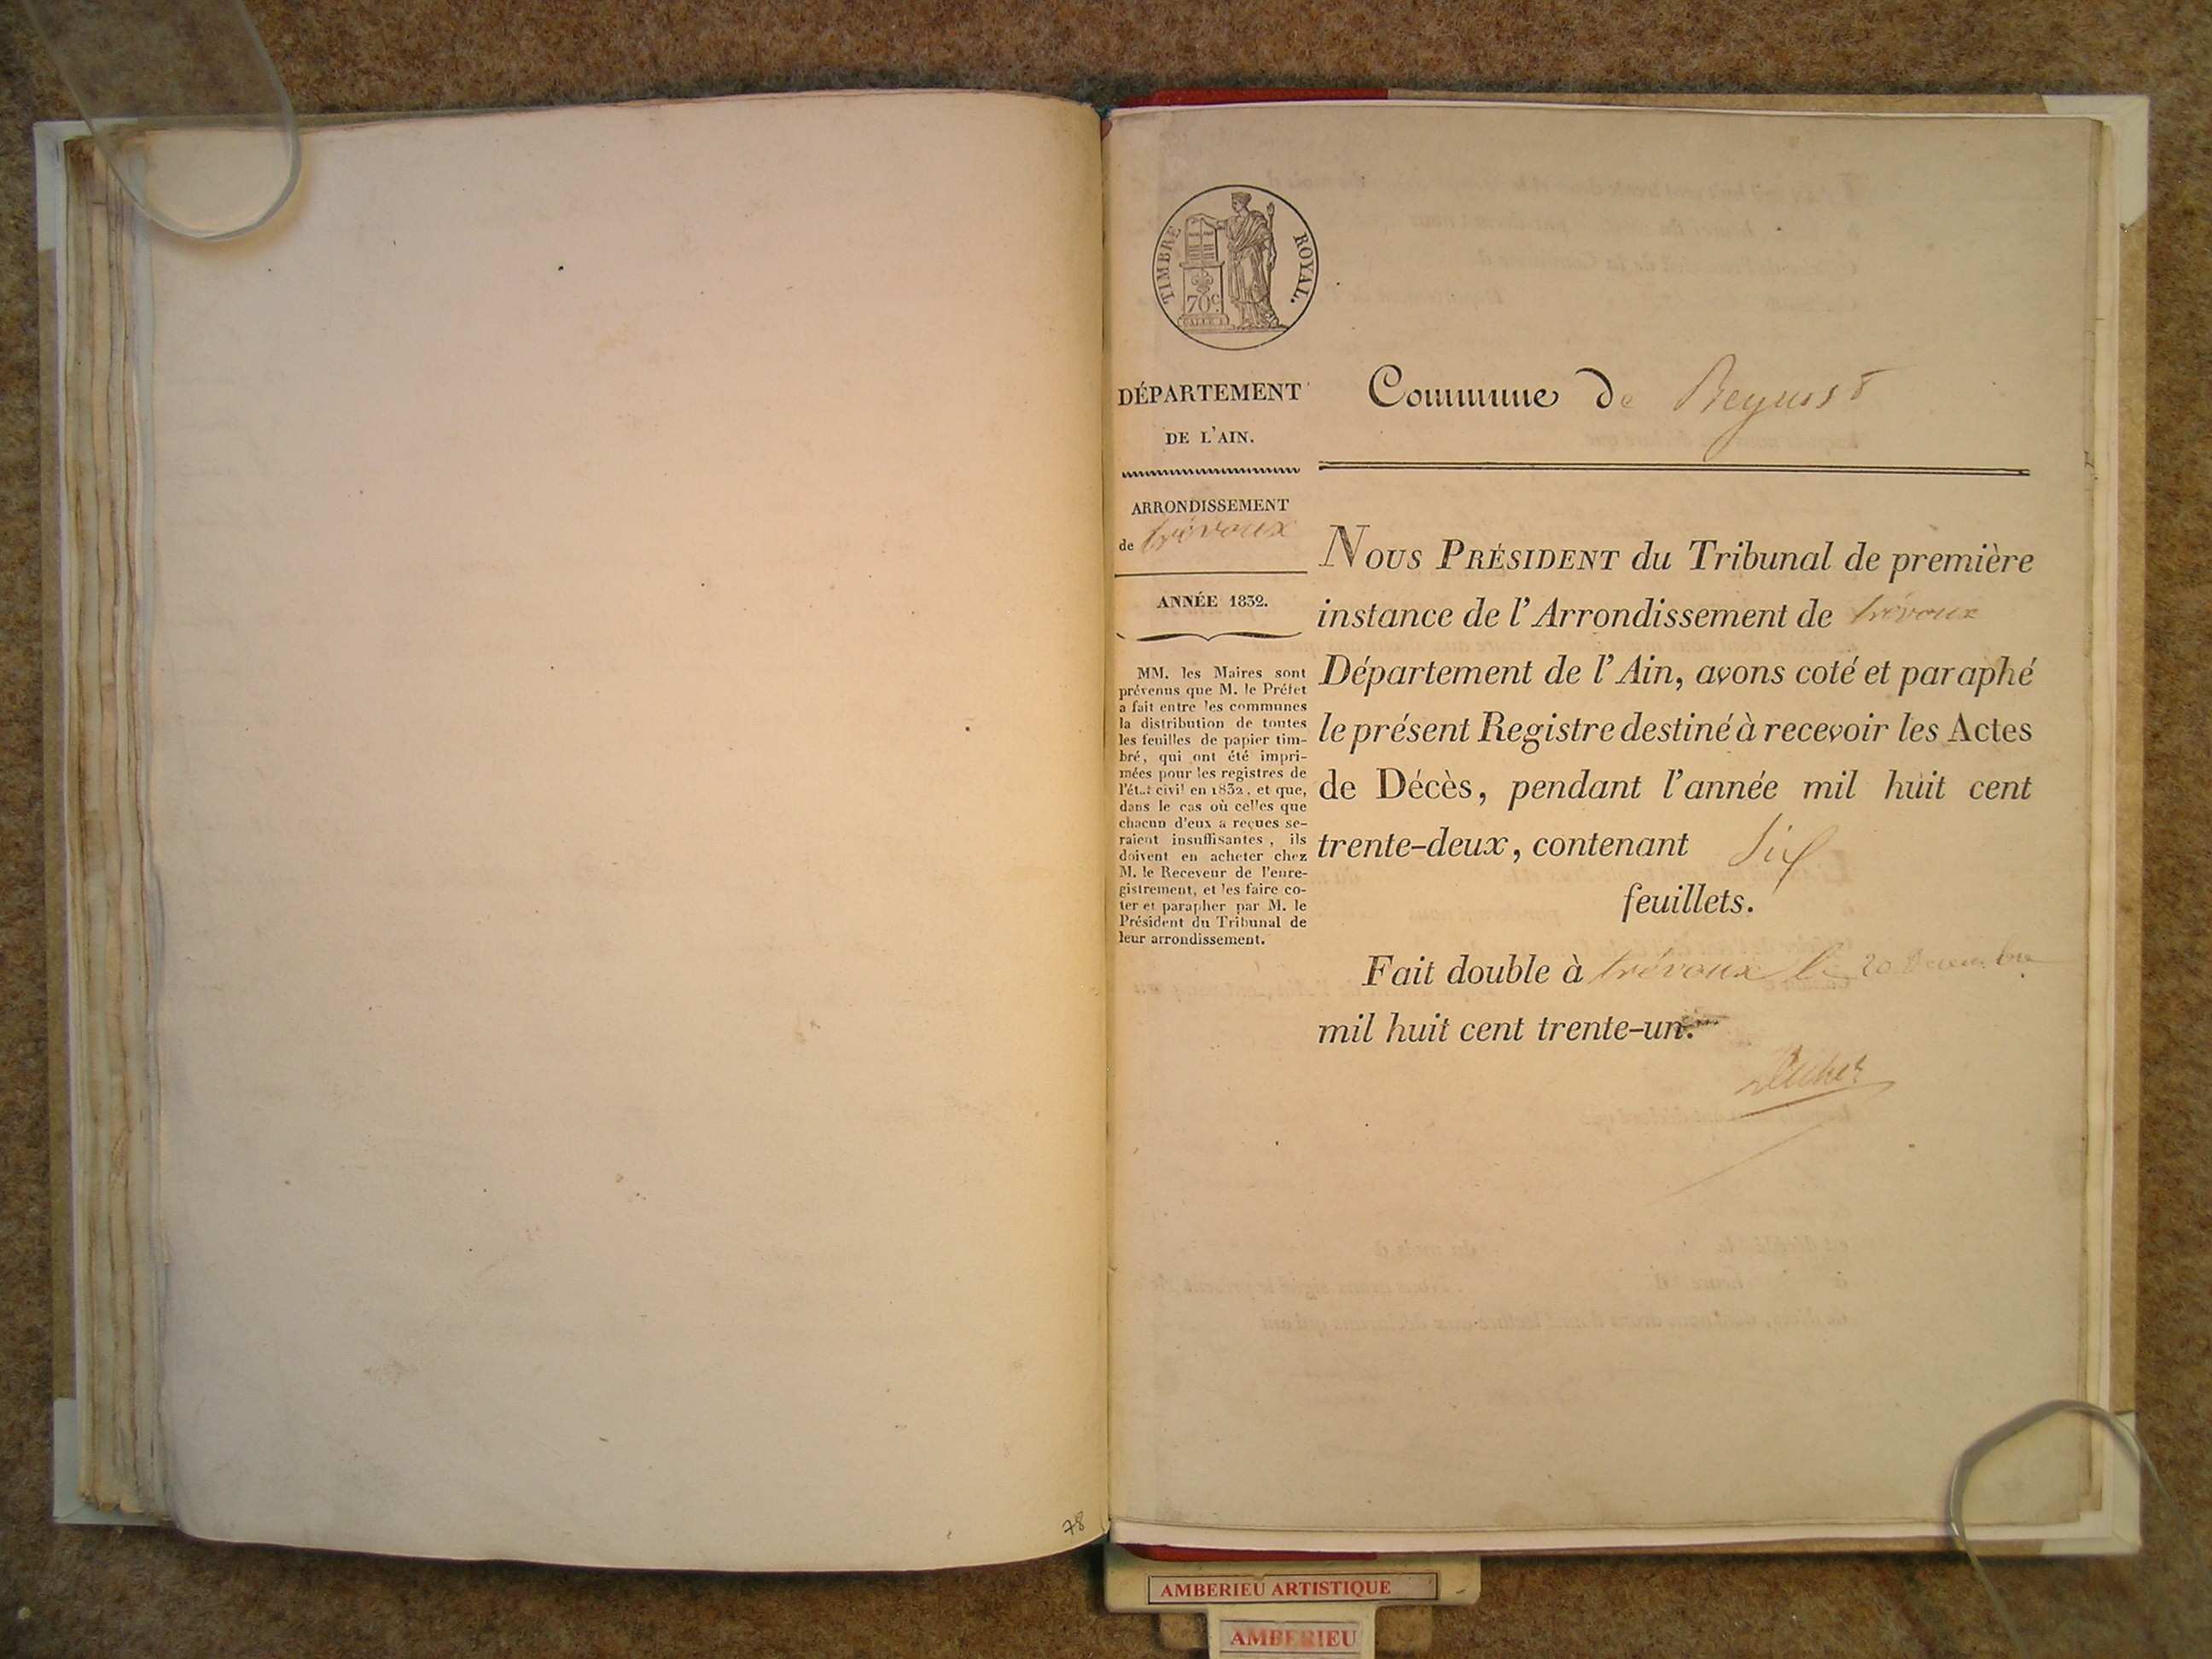 TIMBRE ROYAL.
70c.
DÉPARTEMENT
DE L'AIN.
ARRONDISSEMENT
de trévoux
ANNÉE 1832.
MM. les Maires sont
prévenus que M. le Préfet
a fait entre les communes
la distribution de toutes
les feuilles de papier tim-
bré, qui ont été impri-
mées pour les registres de
l'état civil en 1832, et que,
dans le cas où celles que
chacun d'eux a reçues se-
raient insuffisantes, ils
doivent en acheter chez
M. le Receveur de l'enre-
gistrement, et les faire co-
ter et parapher par M. le
Président du Tribunal de
leur arrondissement.
Commune de
NOUS PRÉSIDENT du Tribunal de première
instance de l'Arrondissement de trévoux
Département de l'Ain, avons coté et paraphé
le présent Registre destiné à recevoir les Actes
de Décès, pendant l'année mil huit cent
trente-deux, contenant Six
feuillets.
Fait double à trévoux le 20 Décembre
mil huit cent trente-un.
78
AMBERIEU ARTISTIQUE
AMBERIEU